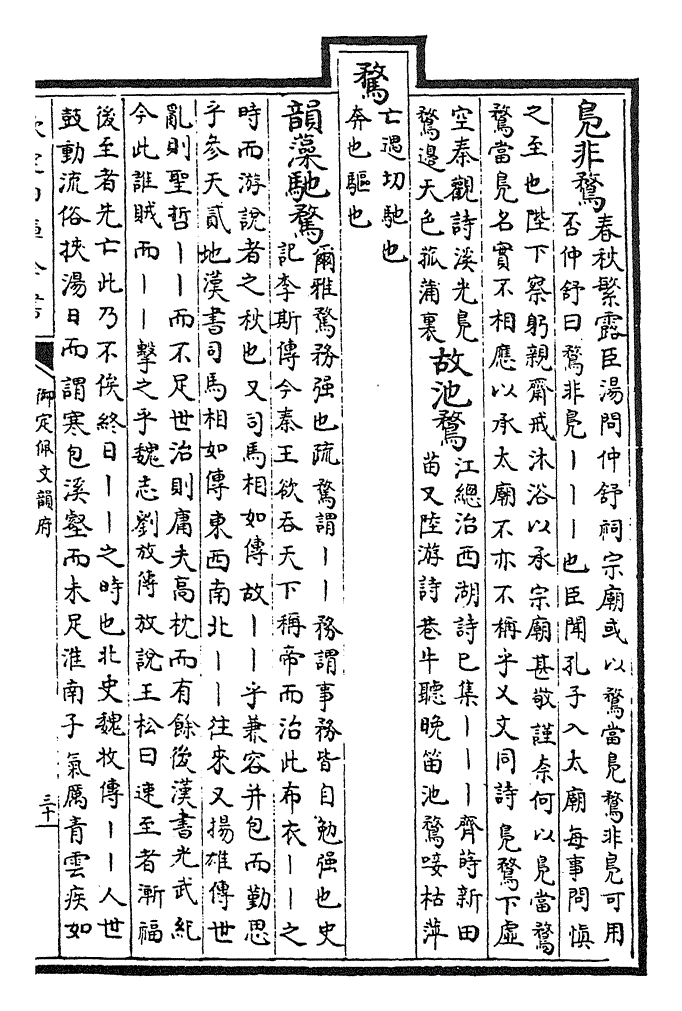 鳬非鶩
春秋繁露臣湯問仲舒祠宗廟或以鶩當鳬鶩非鳬可用
否仲舒曰鶩非鳬丨丨丨也臣聞孔子入太廟每事問慎
之至也陛下察躬親齋戒沐浴以承宗廟甚敬謹奈何以鳬當鶩
鶩當鳬名實不相應以承太廟不亦不稱乎又文同詩鳬鶩下虛
空秦觀詩溪光鳬
鶩邊天色菰蒲裏
故池鶩
江總治西湖詩已集丨丨丨齊蒔新田
苗又陸游詩巷牛聽晚笛池鶩唼枯萍
騖
亡遇切馳也
奔也驅也
韻藻馳騖
爾雅騖務强也疏騖謂丨丨務謂事務皆自勉强也史
記李斯傳今秦王欲吞天下稱帝而治此布衣丨丨之
時而游說者之秋也又司馬相如傳故丨丨乎兼容并包而勤思
乎參天貳地漢書司馬相如傳東西南北丨丨往來又揚雄傳世
亂則聖哲丨丨而不足世治則庸夫高枕而有餘後漢書光武紀
今此誰賊而丨丨擊之乎魏志劉放傳放說王松曰速至者漸福
後至者先亡此乃不俟終日丨丨之時也北史魏收傳丨丨人世
鼓動流俗挾湯日而謂寒包溪壑而未足淮南子氣厲青雲疾如
御定佩文韻府
三十